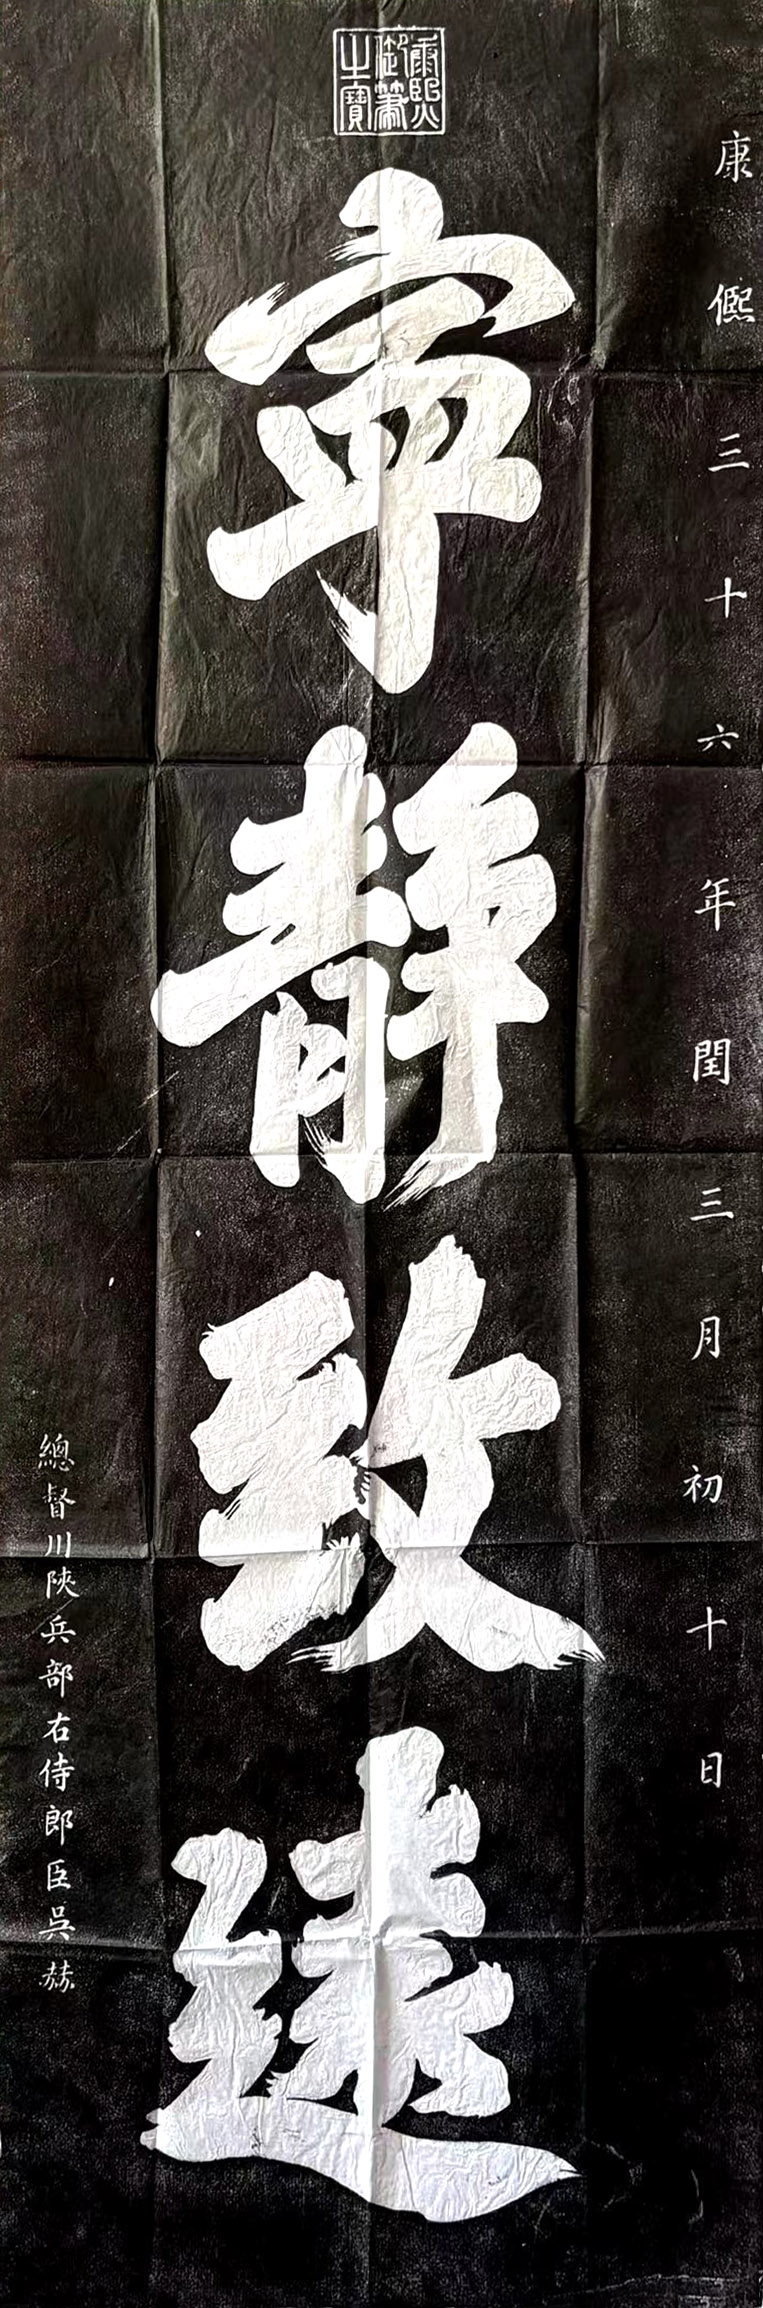 康熙御筆之寶
康熙三十六年閏三月初十日
寧靜致遠
總督川陝兵部右侍郎臣吳赫